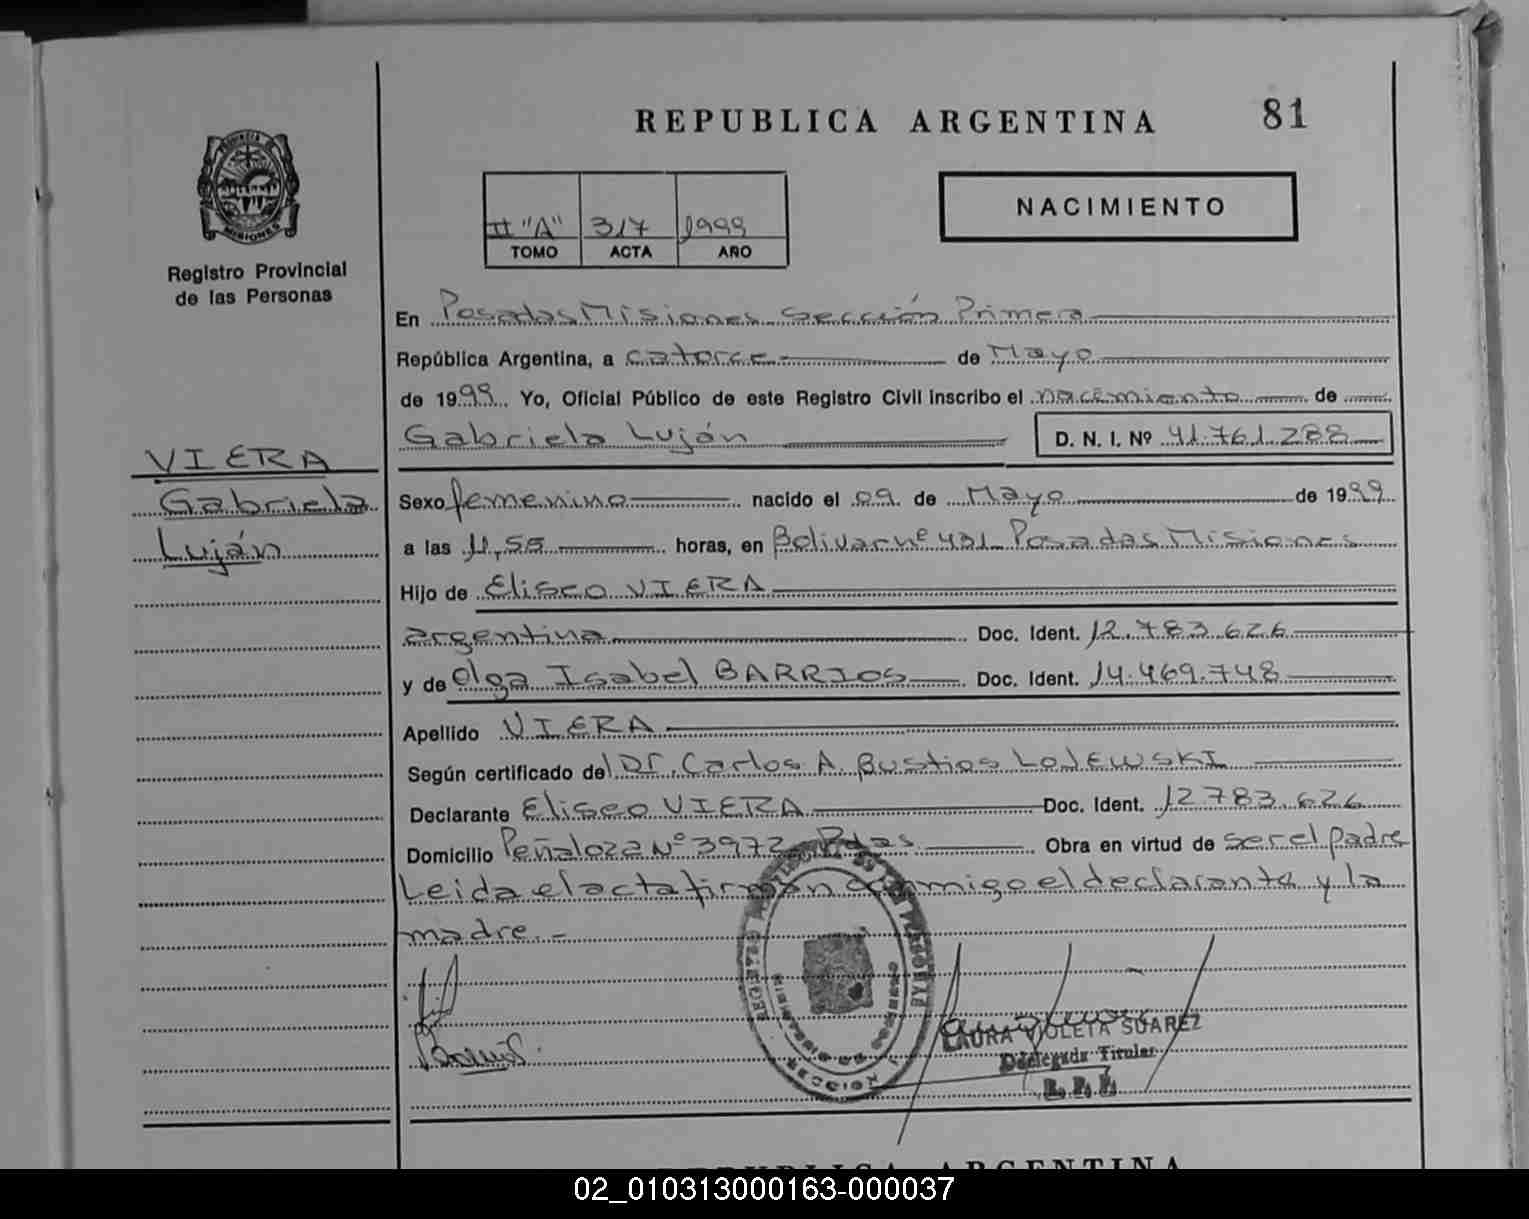 REPUBLICA ARGENTINA 81
PROVINCIA DE
MISIONES
Registro Provincial
de las Personas
II "A" 317 1999
TOMO ACTA AÑO
NACIMIENTO
En Posadas Misiones Sección Primera
República Argentina, a catorce de Mayo
de 1999 Yo, Oficial Público de este Registro Civil inscribo el nacimiento de
Gabriela Luján D. N. I. Nº 41.761.288
VIERA
Gabriela
Luján
Sexo femenino nacido el 09 de Mayo de 1999
a las 11,55 horas, en Bolivar nº 431 Posadas Misiones
Hijo de Eliseo VIERA
argentina Doc. Ident. 12.783.626
y de Olga Isabel BARRIOS Doc. Ident. 14.469.748
Apellido VIERA
Según certificado del Dr. Carlos A. Bustios LoJEWSKI
Declarante Eliseo VIERA Doc. Ident. 12.783.626
Domicilio Peñaloza Nº 3972 Pdas. Obra en virtud de ser el padre
Leida el acta firman conmigo el declarante y la
madre.-
LAURA VIOLETA SUAREZ
Delegada Titular
R. P. P.
REPUBLICA ARGENTINA
02_010313000163-000037